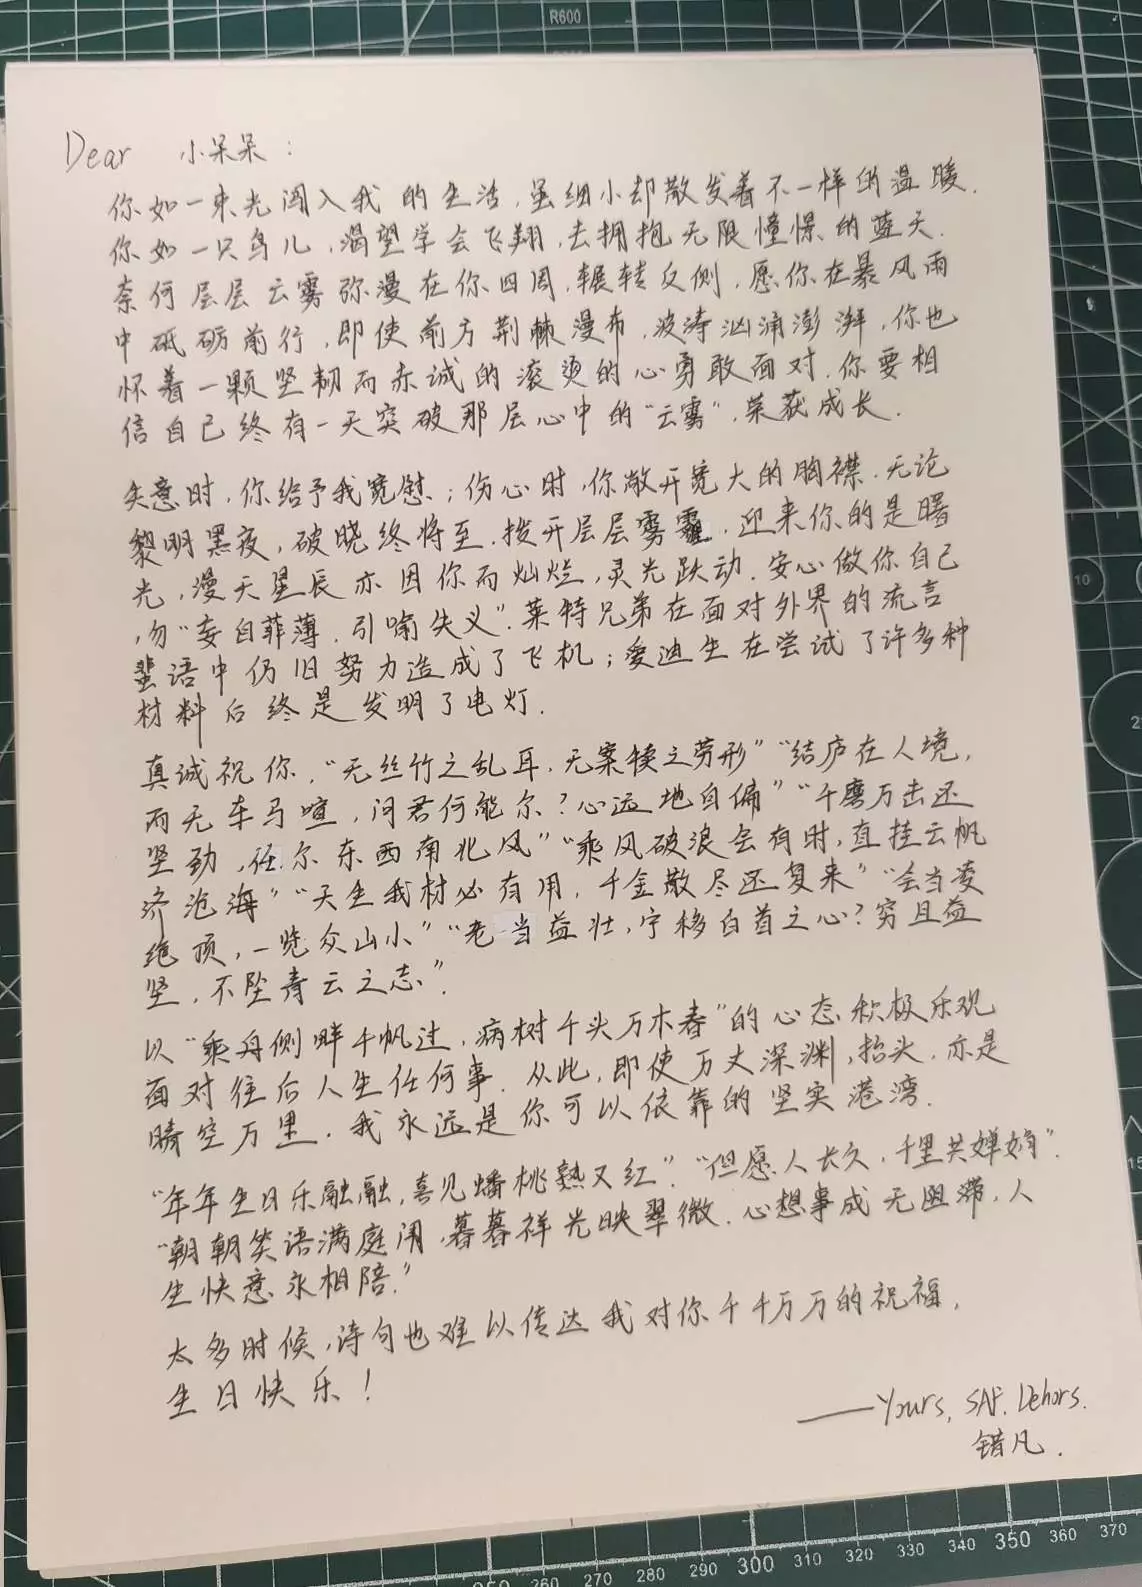 R600
Dear 小呆呆：
你如一束光闯入我的生活，虽细小却散发着不一样的温暖.
你如一只鸟儿，渴望学会飞翔，去拥抱无限憧憬的蓝天.
奈何层层云雾弥漫在你四周，辗转反侧，愿你在暴风雨
中砥砺前行，即使前方荆棘漫布，波涛汹涌澎湃，你也
怀着一颗坚韧而赤诚的滚烫的心勇敢面对.你要相
信自己终有一天突破那层心中的“云雾”，荣获成长.
失意时，你给予我宽慰；伤心时，你敞开宽大的胸襟.无论
黎明黑夜，破晓终将至.拨开层层雾霾，迎来你的是曙
光，漫天星辰亦因你而灿烂，灵光跃动.安心做你自己
，勿“妄自菲薄，引喻失义”.莱特兄弟在面对外界的流言
蜚语中仍旧努力造成了飞机；爱迪生在尝试了许多种
材料后终是发明了电灯.
真诚祝你，“无丝竹之乱耳，无案牍之劳形”“结庐在人境，
而无车马喧，问君何能尔？心远地自偏”“千磨万击还
坚劲，任尔东西南北风”“乘风破浪会有时，直挂云帆
济沧海”“天生我材必有用，千金散尽还复来”“会当凌
绝顶，一览众山小”“老当益壮，宁移白首之心？穷且益
坚，不坠青云之志.”
以“乘舟侧畔千帆过，病树千头万木春”的心态积极乐观
面对往后人生任何事.从此，即使万丈深渊，抬头，亦是
晴空万里.我永远是你可以依靠的坚实港湾.
“年年生日乐融融，喜见蟠桃熟又红”.“但愿人长久，千里共婵娟”.
“朝朝笑语满庭闱，暮暮祥光映翠微.心想事成无阻滞，人
生快意永相陪.”
太多时候，诗句也难以传达我对你千千万万的祝福，
生日快乐！
——Yours, SAF. Dehors.
错凡.
10
260 270 280 290 300 310 320 330 340 350 360 370